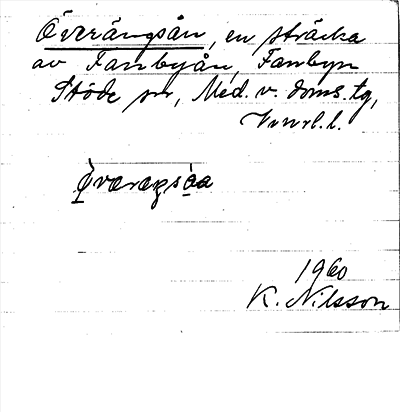 Överängsån, en sträcka
av Fanbyån, Fanbyn
Stöde sn, Med. v. doms. tg,
Vnrl. l.
Øværæŋsåa
1960
K. Nilsson